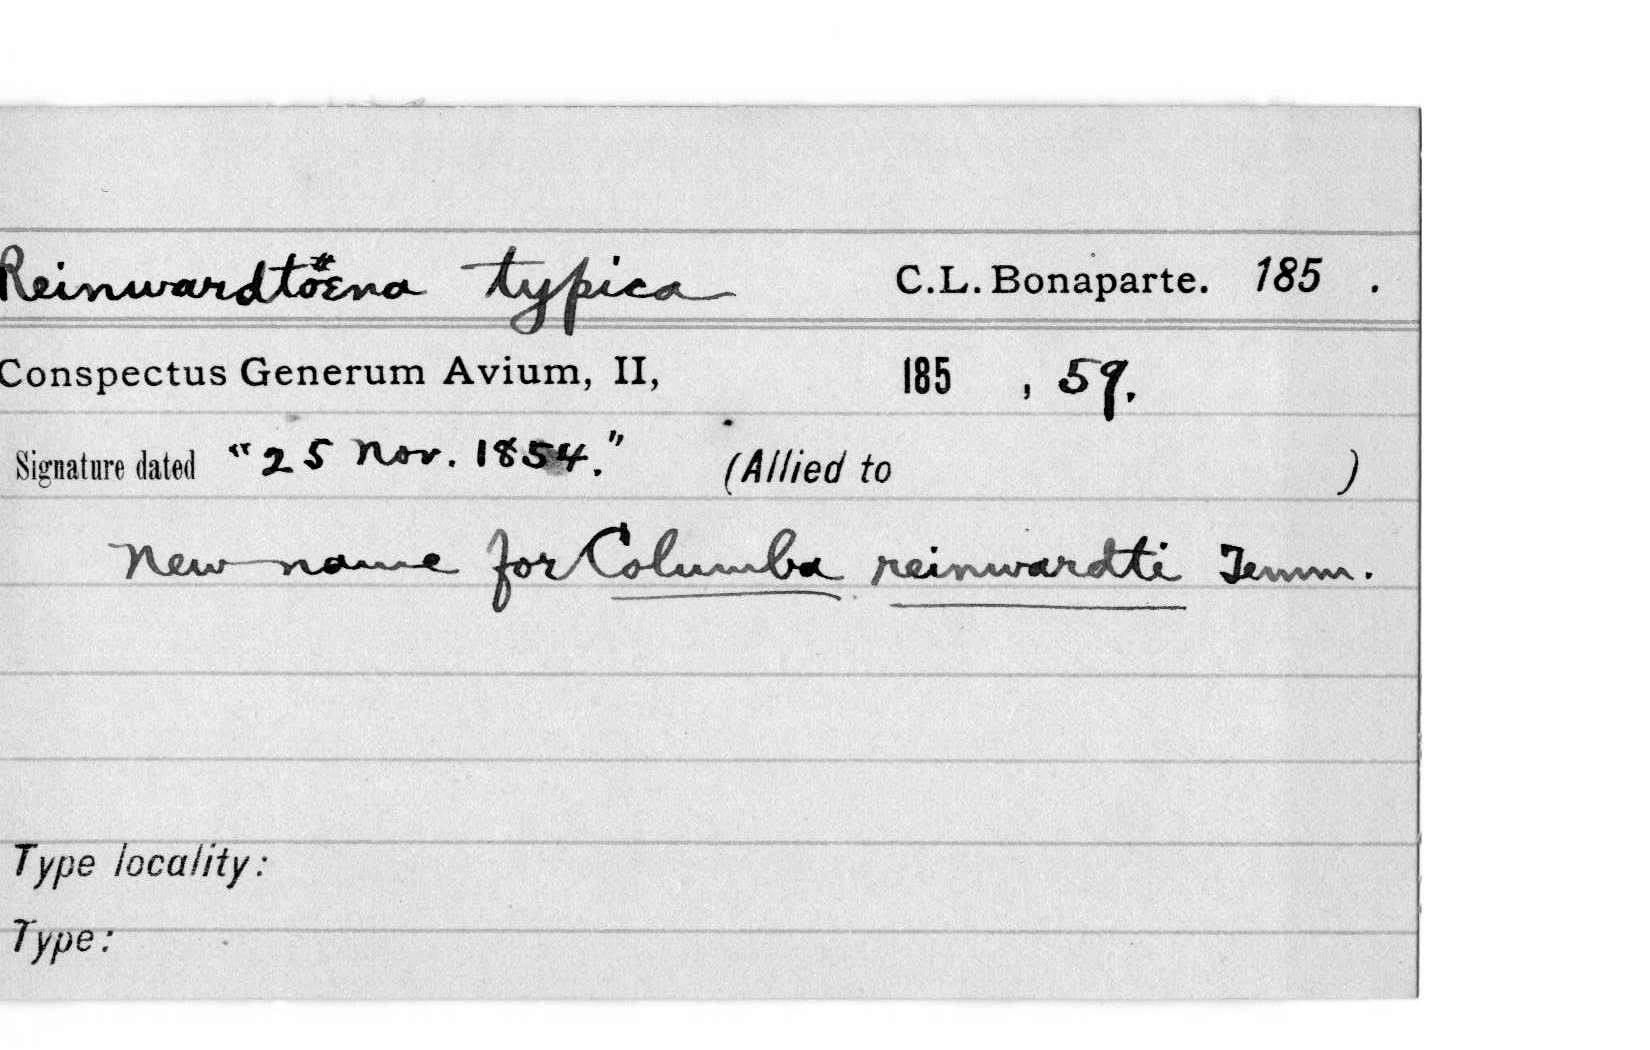 Reinwardtöena typica C.L. Bonaparte. 185 .
Conspectus Generum Avium, II, 185 , 59.
Signature dated "25 Nov. 1854." (Allied to )
New name for Columba reinwardti Temm.
Type locality:
Type: